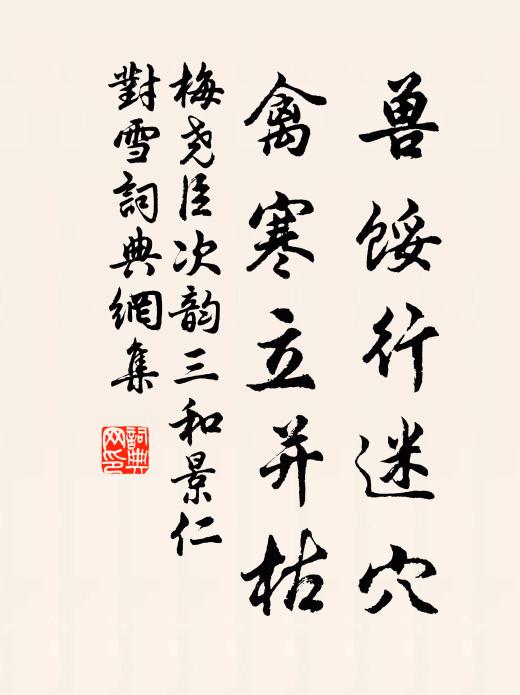 兽馁行迷穴
禽寒立并枯
梅尧臣次韵三和景仁
對雪詞典網集
詞典
网印